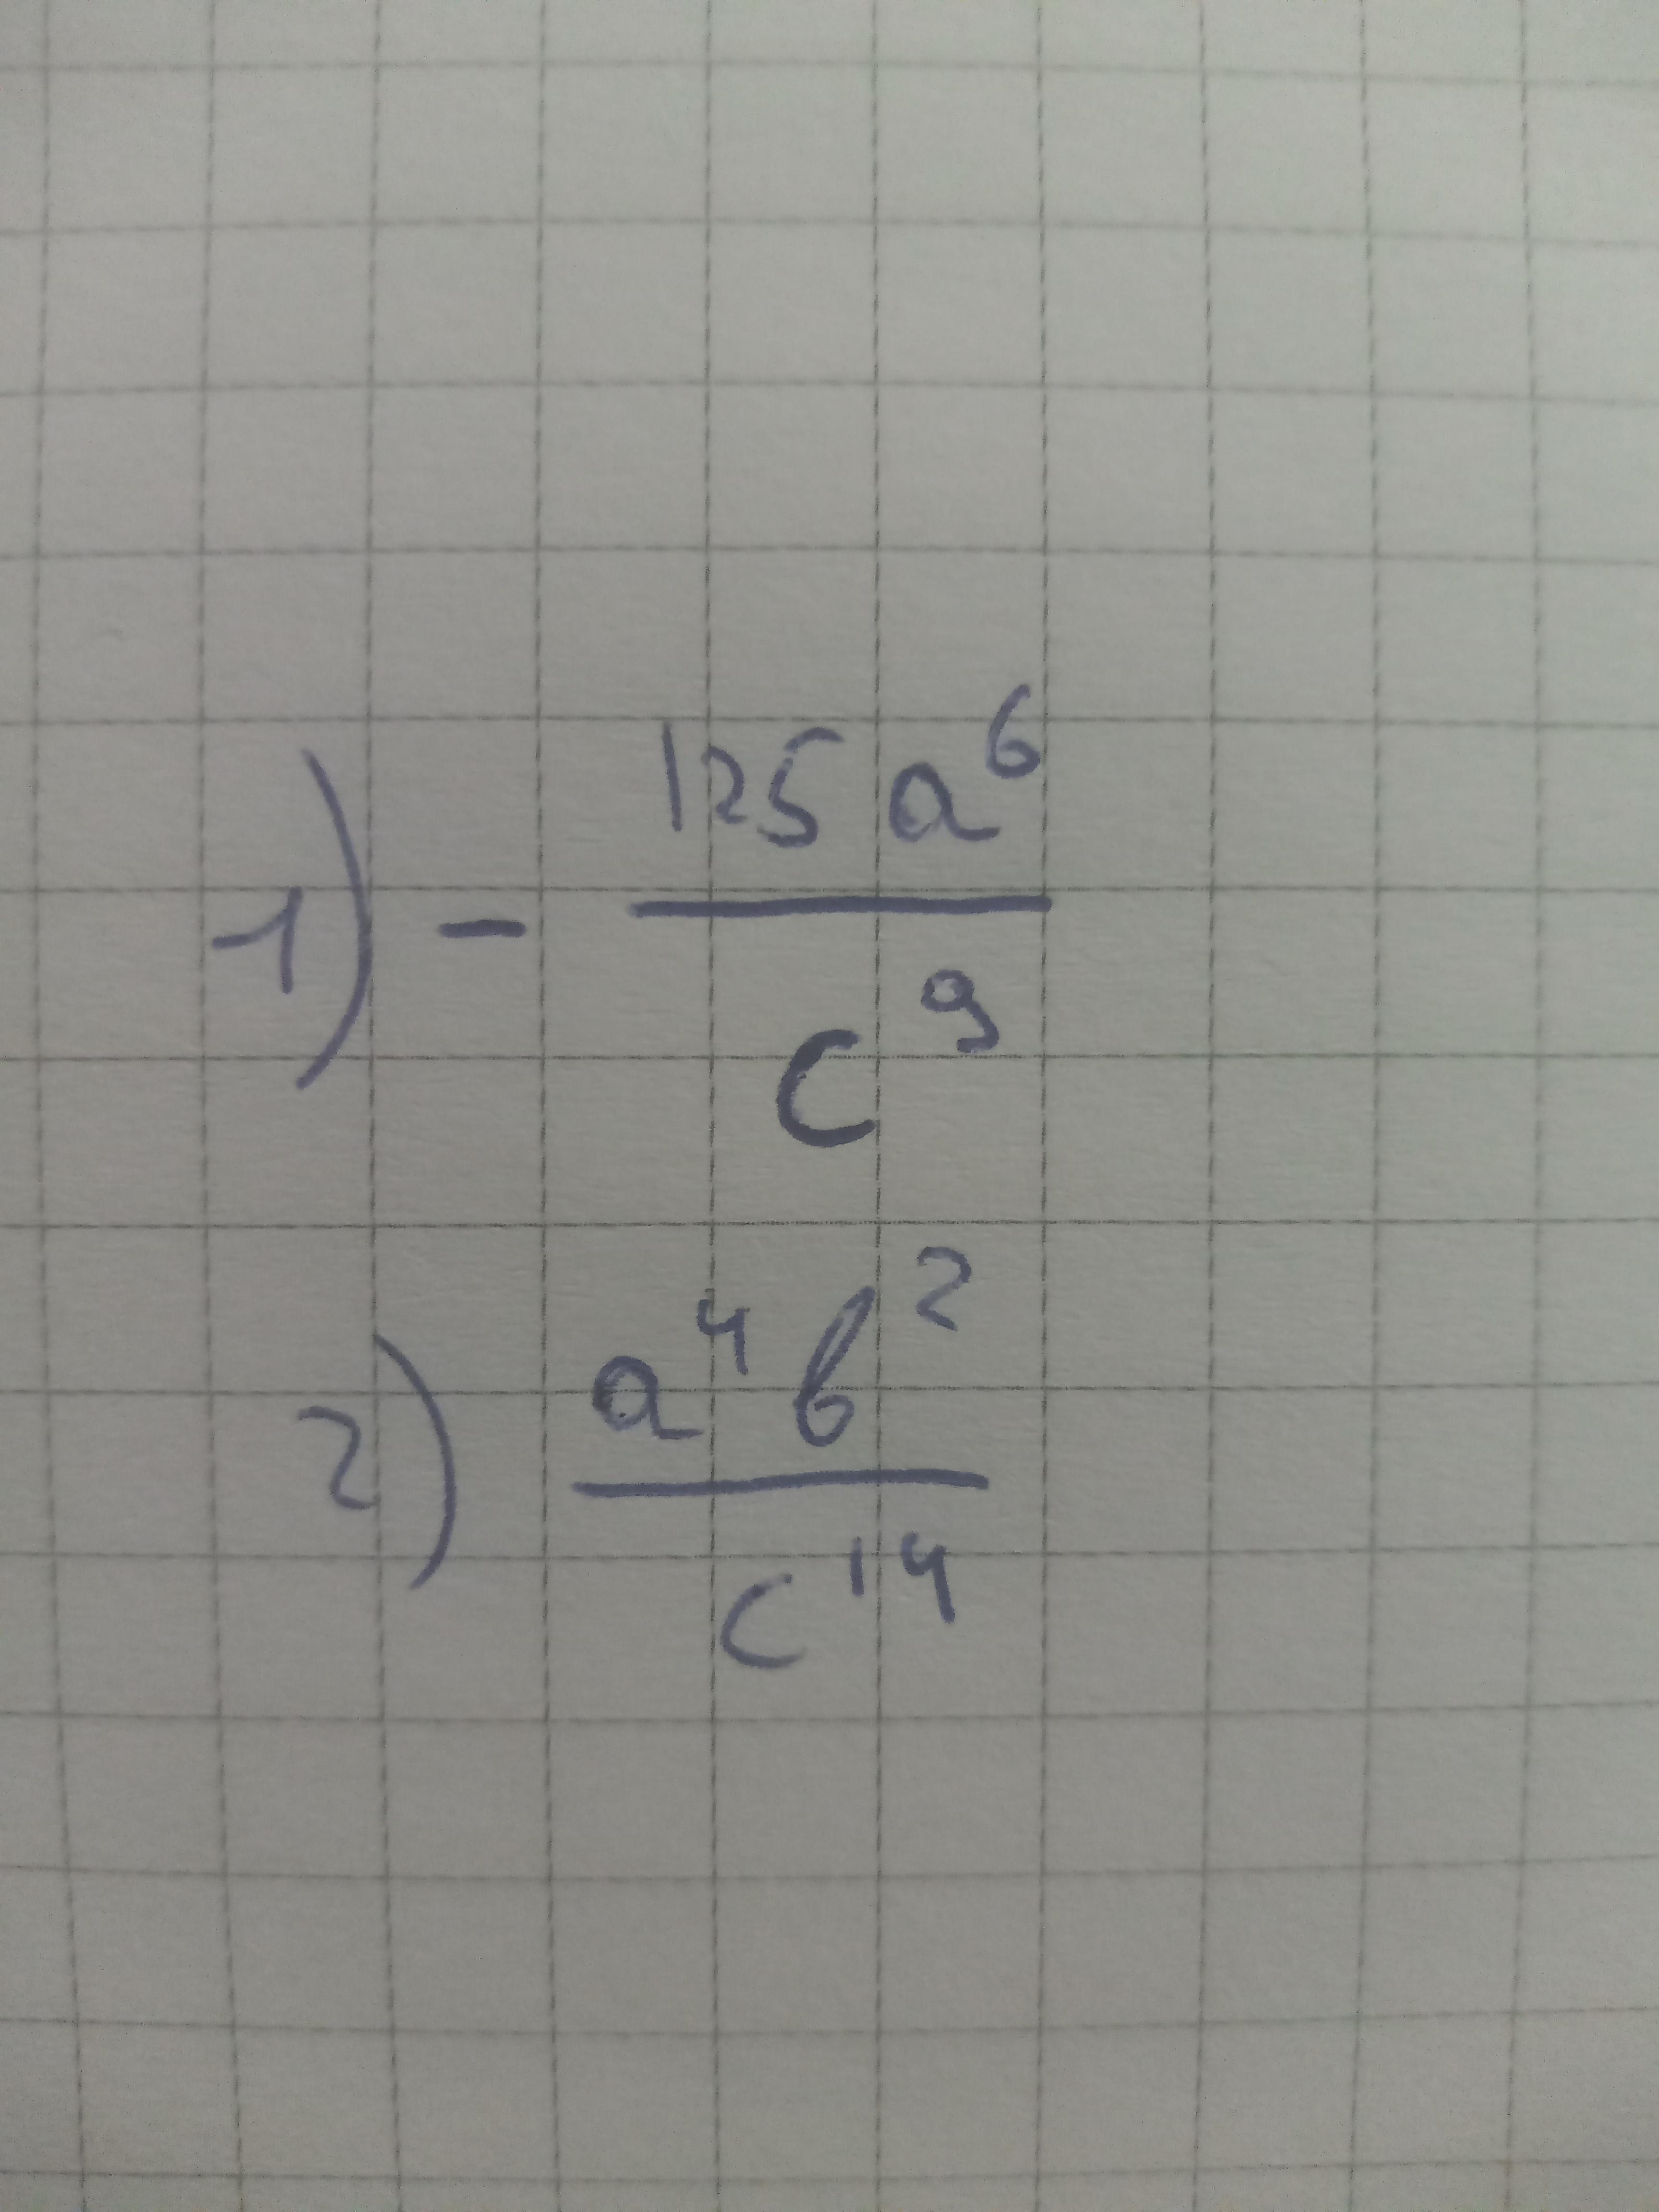 1) - \frac{125 a^6}{c^9}
2) \frac{a^4 b^2}{c^{14}}